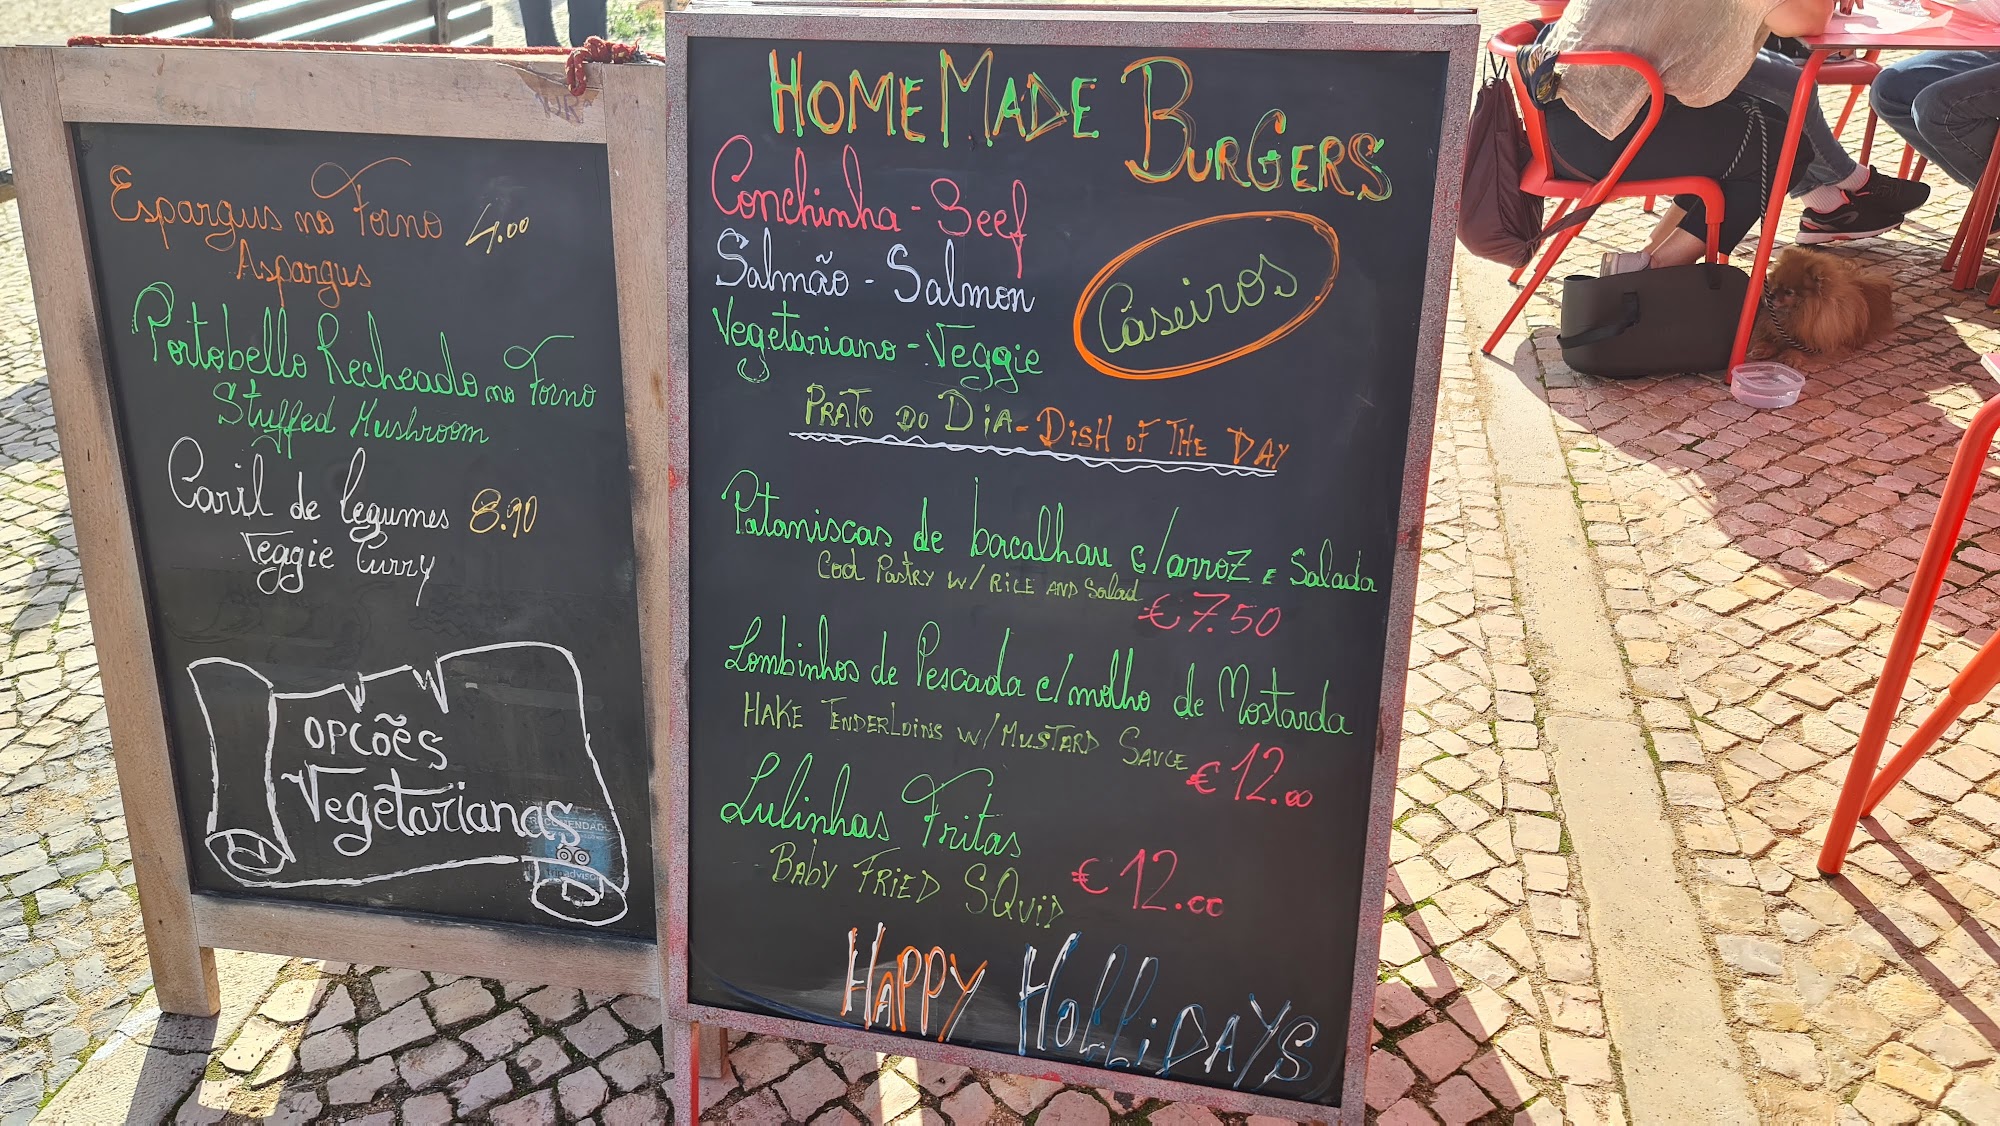 Espargus no Forno 4.00
Aspargus
Portobello Recheado no Forno
Stuffed Mushroom
Caril de legumes 8.90
Veggie Curry
OPCÕES
Vegetarianas
HOMEMADE BURGERS
Conchinha - Beef
Salmão - Salmon
Vegetariano - Veggie
Caseiros
PRATO DO DIA - DISH OF THE DAY
Pataniscas de bacalhau c/arroz e Salada
Cod Pastry w/ RICE AND Salad
€7.50
Lombinhos de Pescada c/molho de Mostarda
HAKE TENDERLOINS W/ MUSTARD SAUCE
€12.00
Lulinhas Fritas
BABY FRIED SQUID €12.00
HAPPY HOLLIDAYS